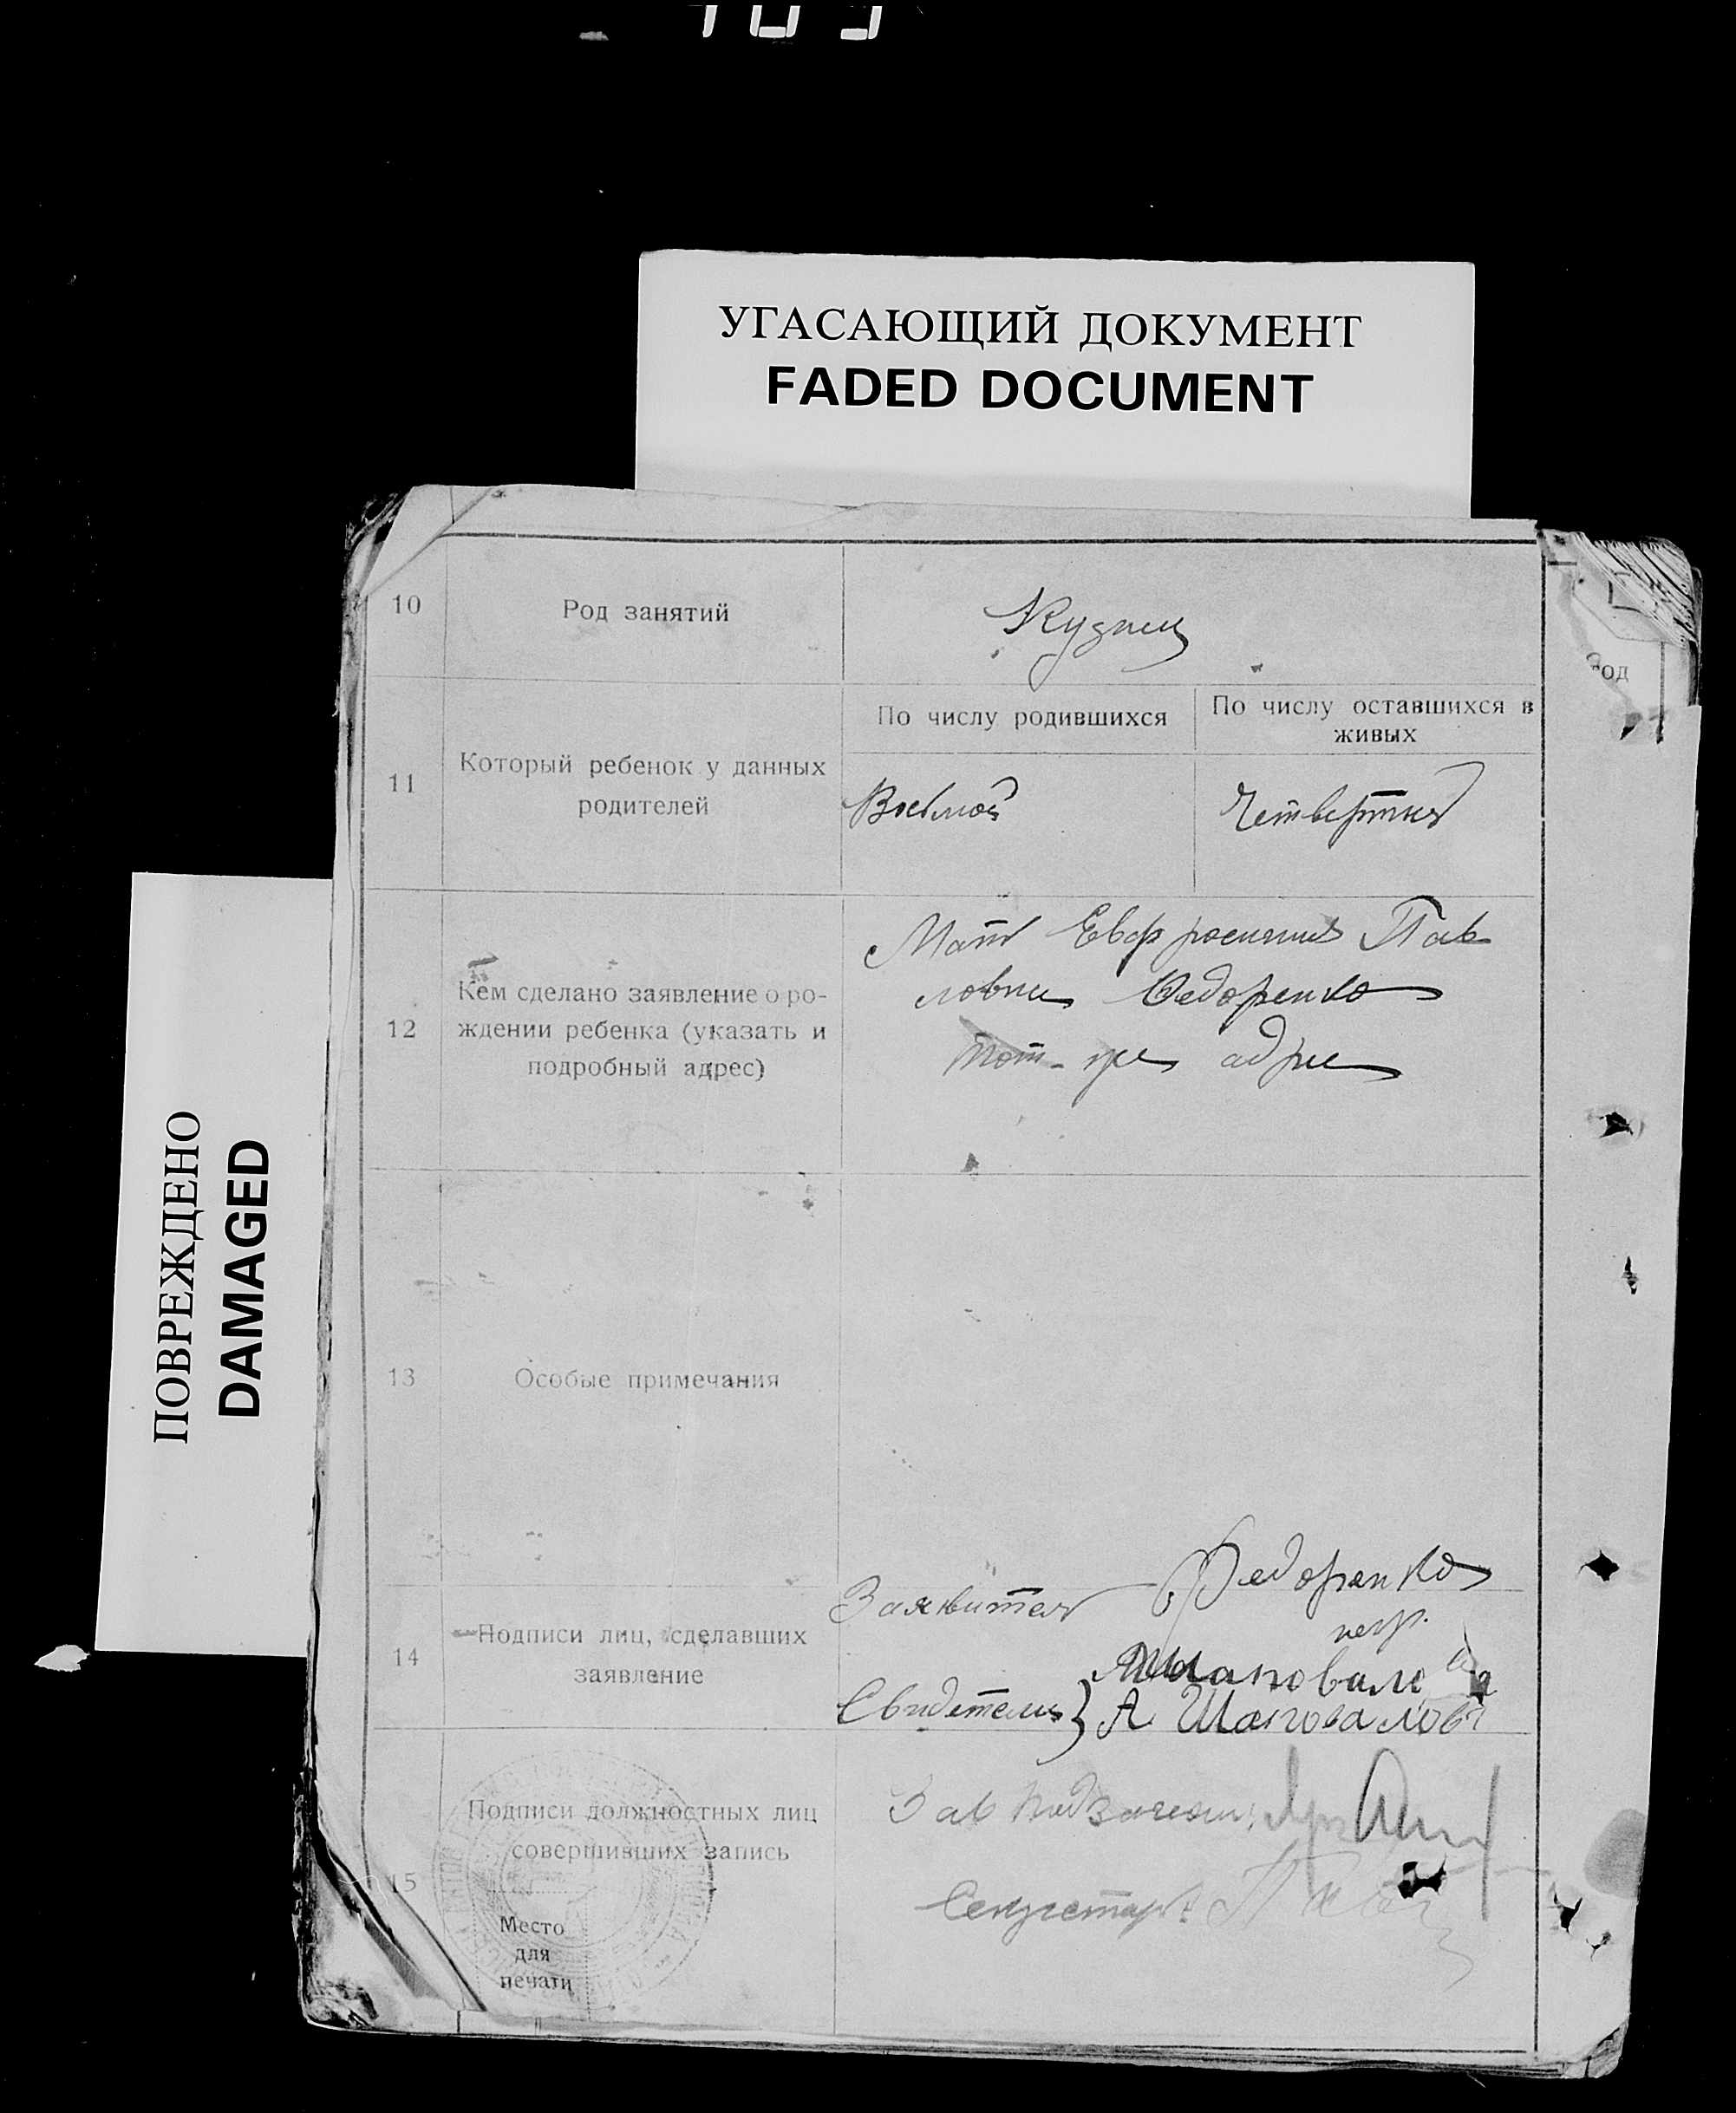 УГАСАЮЩИЙ ДОКУМЕНТ
FADED DOCUMENT
ПОВРЕЖДЕНО
DAMAGED
10
Род занятий
Кузнец
11
Который ребенок у данных
родителей
По числу родившихся
По числу оставшихся в
живых
Восьмой
Четвертый
12
Кем сделано заявление о ро-
ждении ребенка (указать и
подробный адрес)
Мать Евфросиния Пав
ловна Федоренко
тот-же адрес
13
Особые примечания
14
Подписи лиц, сделавших
заявление
Заявитель Федоренко
негр.
Свидетели
А Шаповалов
15
Подписи должностных лиц
совершивших запись
Место
для
печати
Зав
Секретарь
од